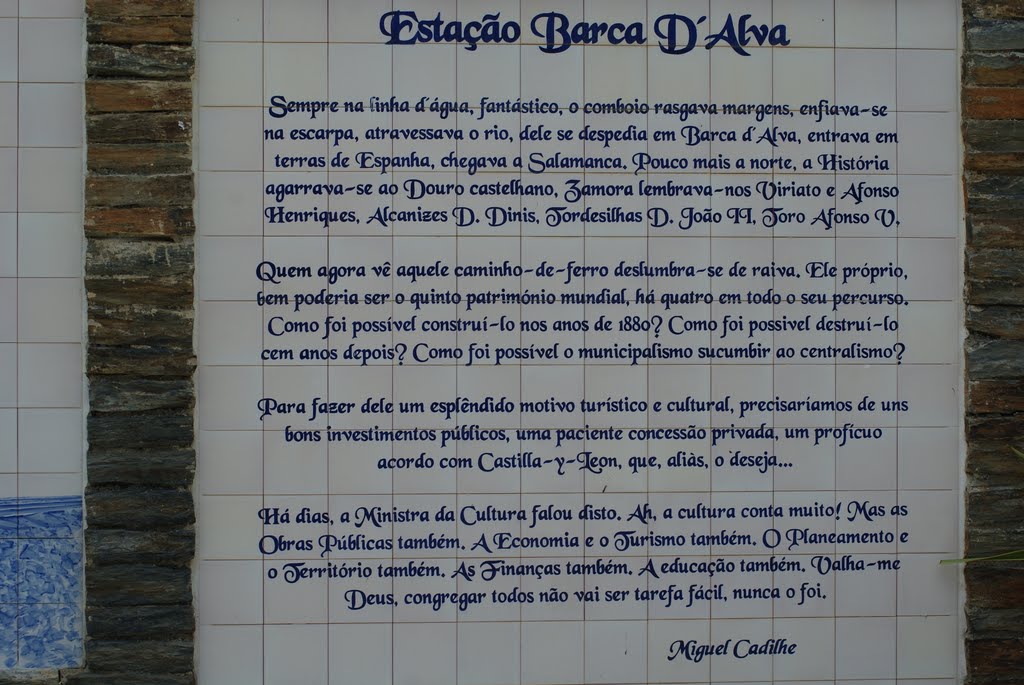 Estação Barca D´Alva
Sempre na linha d´água, fantástico, o comboio rasgava margens, enfiava-se
na escarpa, atravessava o rio, dele se despedia em Barca d´Alva, entrava em
terras de Espanha, chegava a Salamanca. Pouco mais a norte, a História
agarrava-se ao Douro castelhano, Zamora lembrava-nos Viriato e Afonso
Henriques, Alcanizes D. Dinis, Tordesilhas D. João II, Toro Afonso V.
Quem agora vê aquele caminho-de-ferro deslumbra-se de raiva. Ele próprio,
bem poderia ser o quinto património mundial, há quatro em todo o seu percurso.
Como foi possível construí-lo nos anos de 1880? Como foi possivel destruí-lo
cem anos depois? Como foi possível o municipalismo sucumbir ao centralismo?
Para fazer dele um esplêndido motivo turístico e cultural, precisaríamos de uns
bons investimentos públicos, uma paciente concessão privada, um profícuo
acordo com Castilla-y-Leon, que, aliàs, o deseja...
Há dias, a Ministra da Cultura falou disto. Ah, a cultura conta muito! Mas as
Obras Públicas também. A Economia e o Turismo também. O Planeamento e
o Território também. As Finanças também. A educação também. Valha-me
Deus, congregar todos não vai ser tarefa fácil, nunca o foi.
Miguel Cadilhe